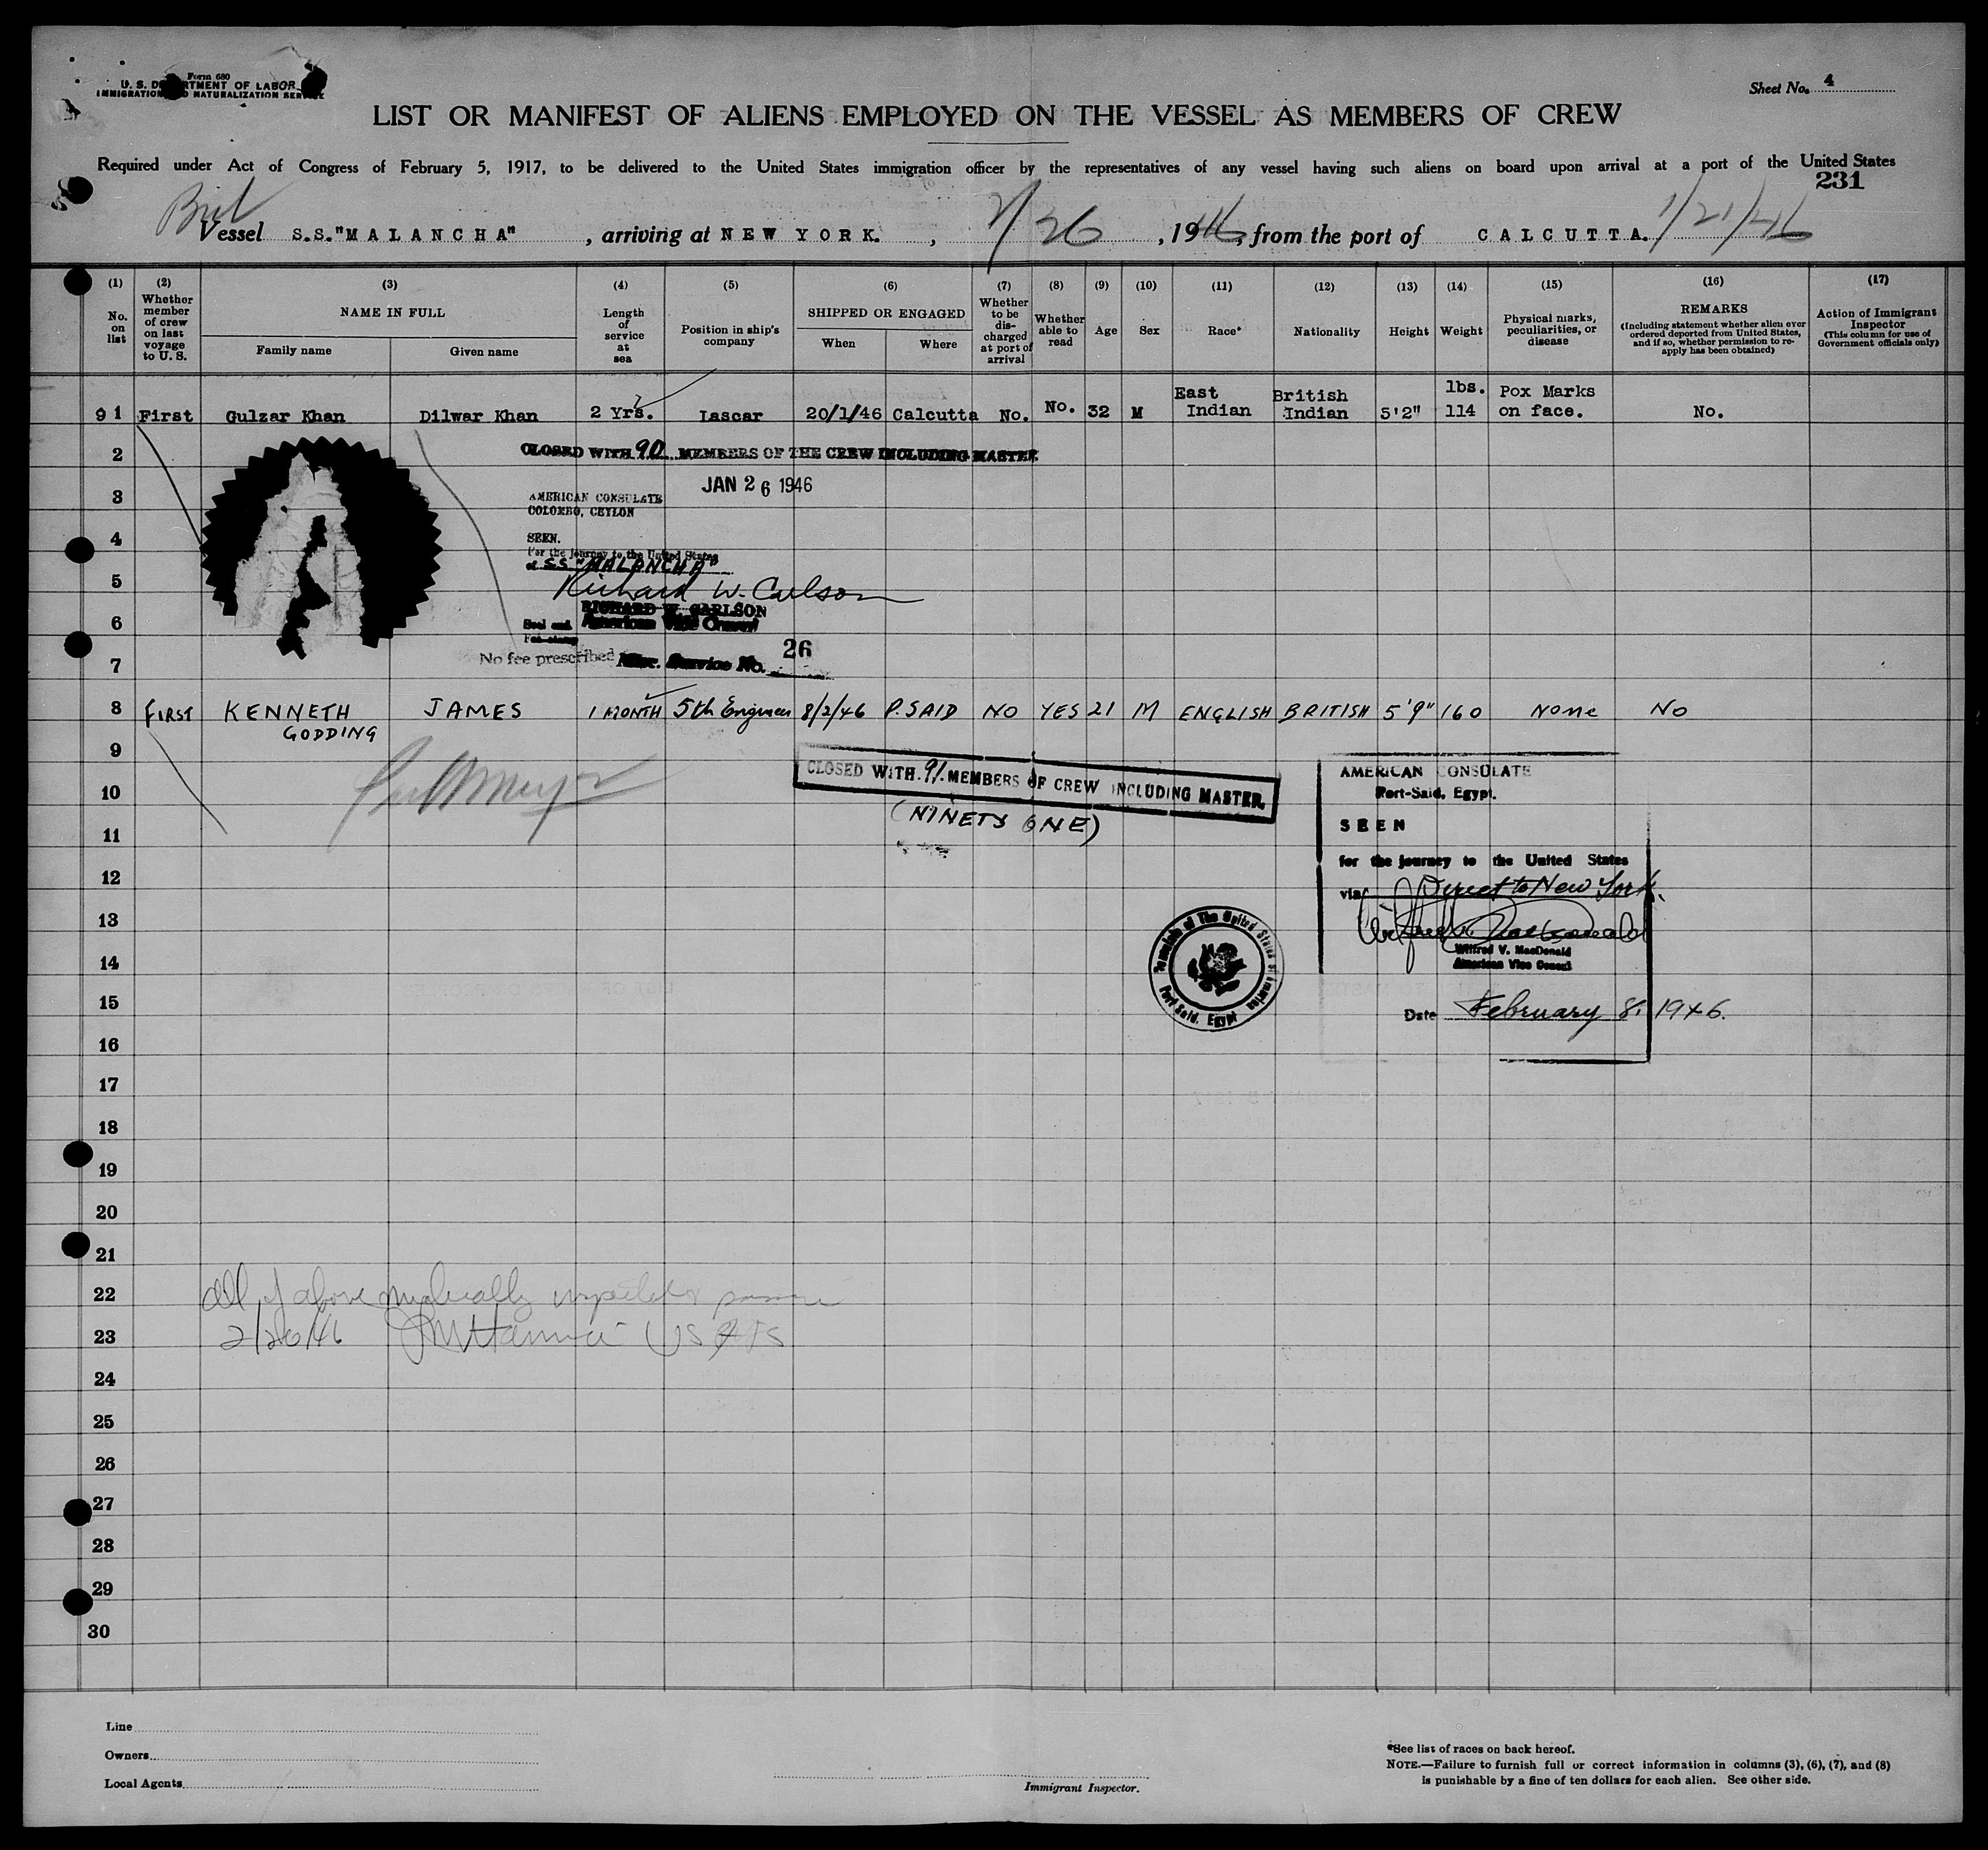 Form 680
U. S. DEPARTMENT OF LABOR
IMMIGRATION AND NATURALIZATION SERVICE
Sheet No. 4
LIST OR MANIFEST OF ALIENS EMPLOYED ON THE VESSEL AS MEMBERS OF CREW
Required under Act of Congress of February 5, 1917, to be delivered to the United States immigration officer by the representatives of any vessel having such aliens on board upon arrival at a port of the United States
231
Brit
Vessel S.S."MALANCHA", arriving at NEW YORK., 2/26, 1946, from the port of CALCUTTA. 1/21/46
(1) No. on list
(2) Whether member of crew on last voyage to U. S.
(3) NAME IN FULL
Family name Given name
(4) Length of service at sea
(5) Position in ship's company
(6) SHIPPED OR ENGAGED
When Where
(7) Whether to be discharged at port of arrival
(8) Whether able to read
(9) Age
(10) Sex
(11) Race*
(12) Nationality
(13) Height
(14) Weight
(15) Physical marks, peculiarities, or disease
(16) REMARKS
(Including statement whether alien ever ordered deported from United States, and if so, whether permission to reapply has been obtained)
(17) Action of Immigrant Inspector
(This column for use of Government officials only)
91 First Gulzar Khan Dilwar Khan 2 Yrs. Lascar 20/1/46 Calcutta No. No. 32 M East Indian British Indian 5'2" lbs. 114 Pox Marks on face. No.
2
CLOSED WITH 90 MEMBERS OF THE CREW INCLUDING MASTER
3
JAN 26 1946
AMERICAN CONSULATE
COLOMBO, CEYLON
4
SEEN.
For the journey to the United States
S.S. "MALANCHA"
5
Richard W. Carlson
RICHARD W. CARLSON
American Vice Consul
6
Seal and
Fee stamp
No fee prescribed
Misc. Service No. 26
7
8 FIRST KENNETH GODDING JAMES 1 MONTH 5th Engineer 8/2/46 P. SAID NO YES 21 M ENGLISH BRITISH 5'9" 160 NONE NO
9
CLOSED WITH 91 MEMBERS OF CREW INCLUDING MASTER.
(NINETY ONE)
10
11
AMERICAN CONSULATE
Port-Said, Egypt.
SEEN
for the journey to the United States
via Direct to New York.
12
13
Wilfred V. MacDonald
Wilfred V. MacDonald
American Vice Consul
Date February 8, 1946.
Consulate of The United States of America
Port Said, Egypt
14
15
16
17
18
19
20
21
22 All of above medically inspected
23 2/26/46
24
25
26
27
28
29
30
Line
Owners
Local Agents
Immigrant Inspector.
*See list of races on back hereof.
NOTE.—Failure to furnish full or correct information in columns (3), (6), (7), and (8)
is punishable by a fine of ten dollars for each alien. See other side.